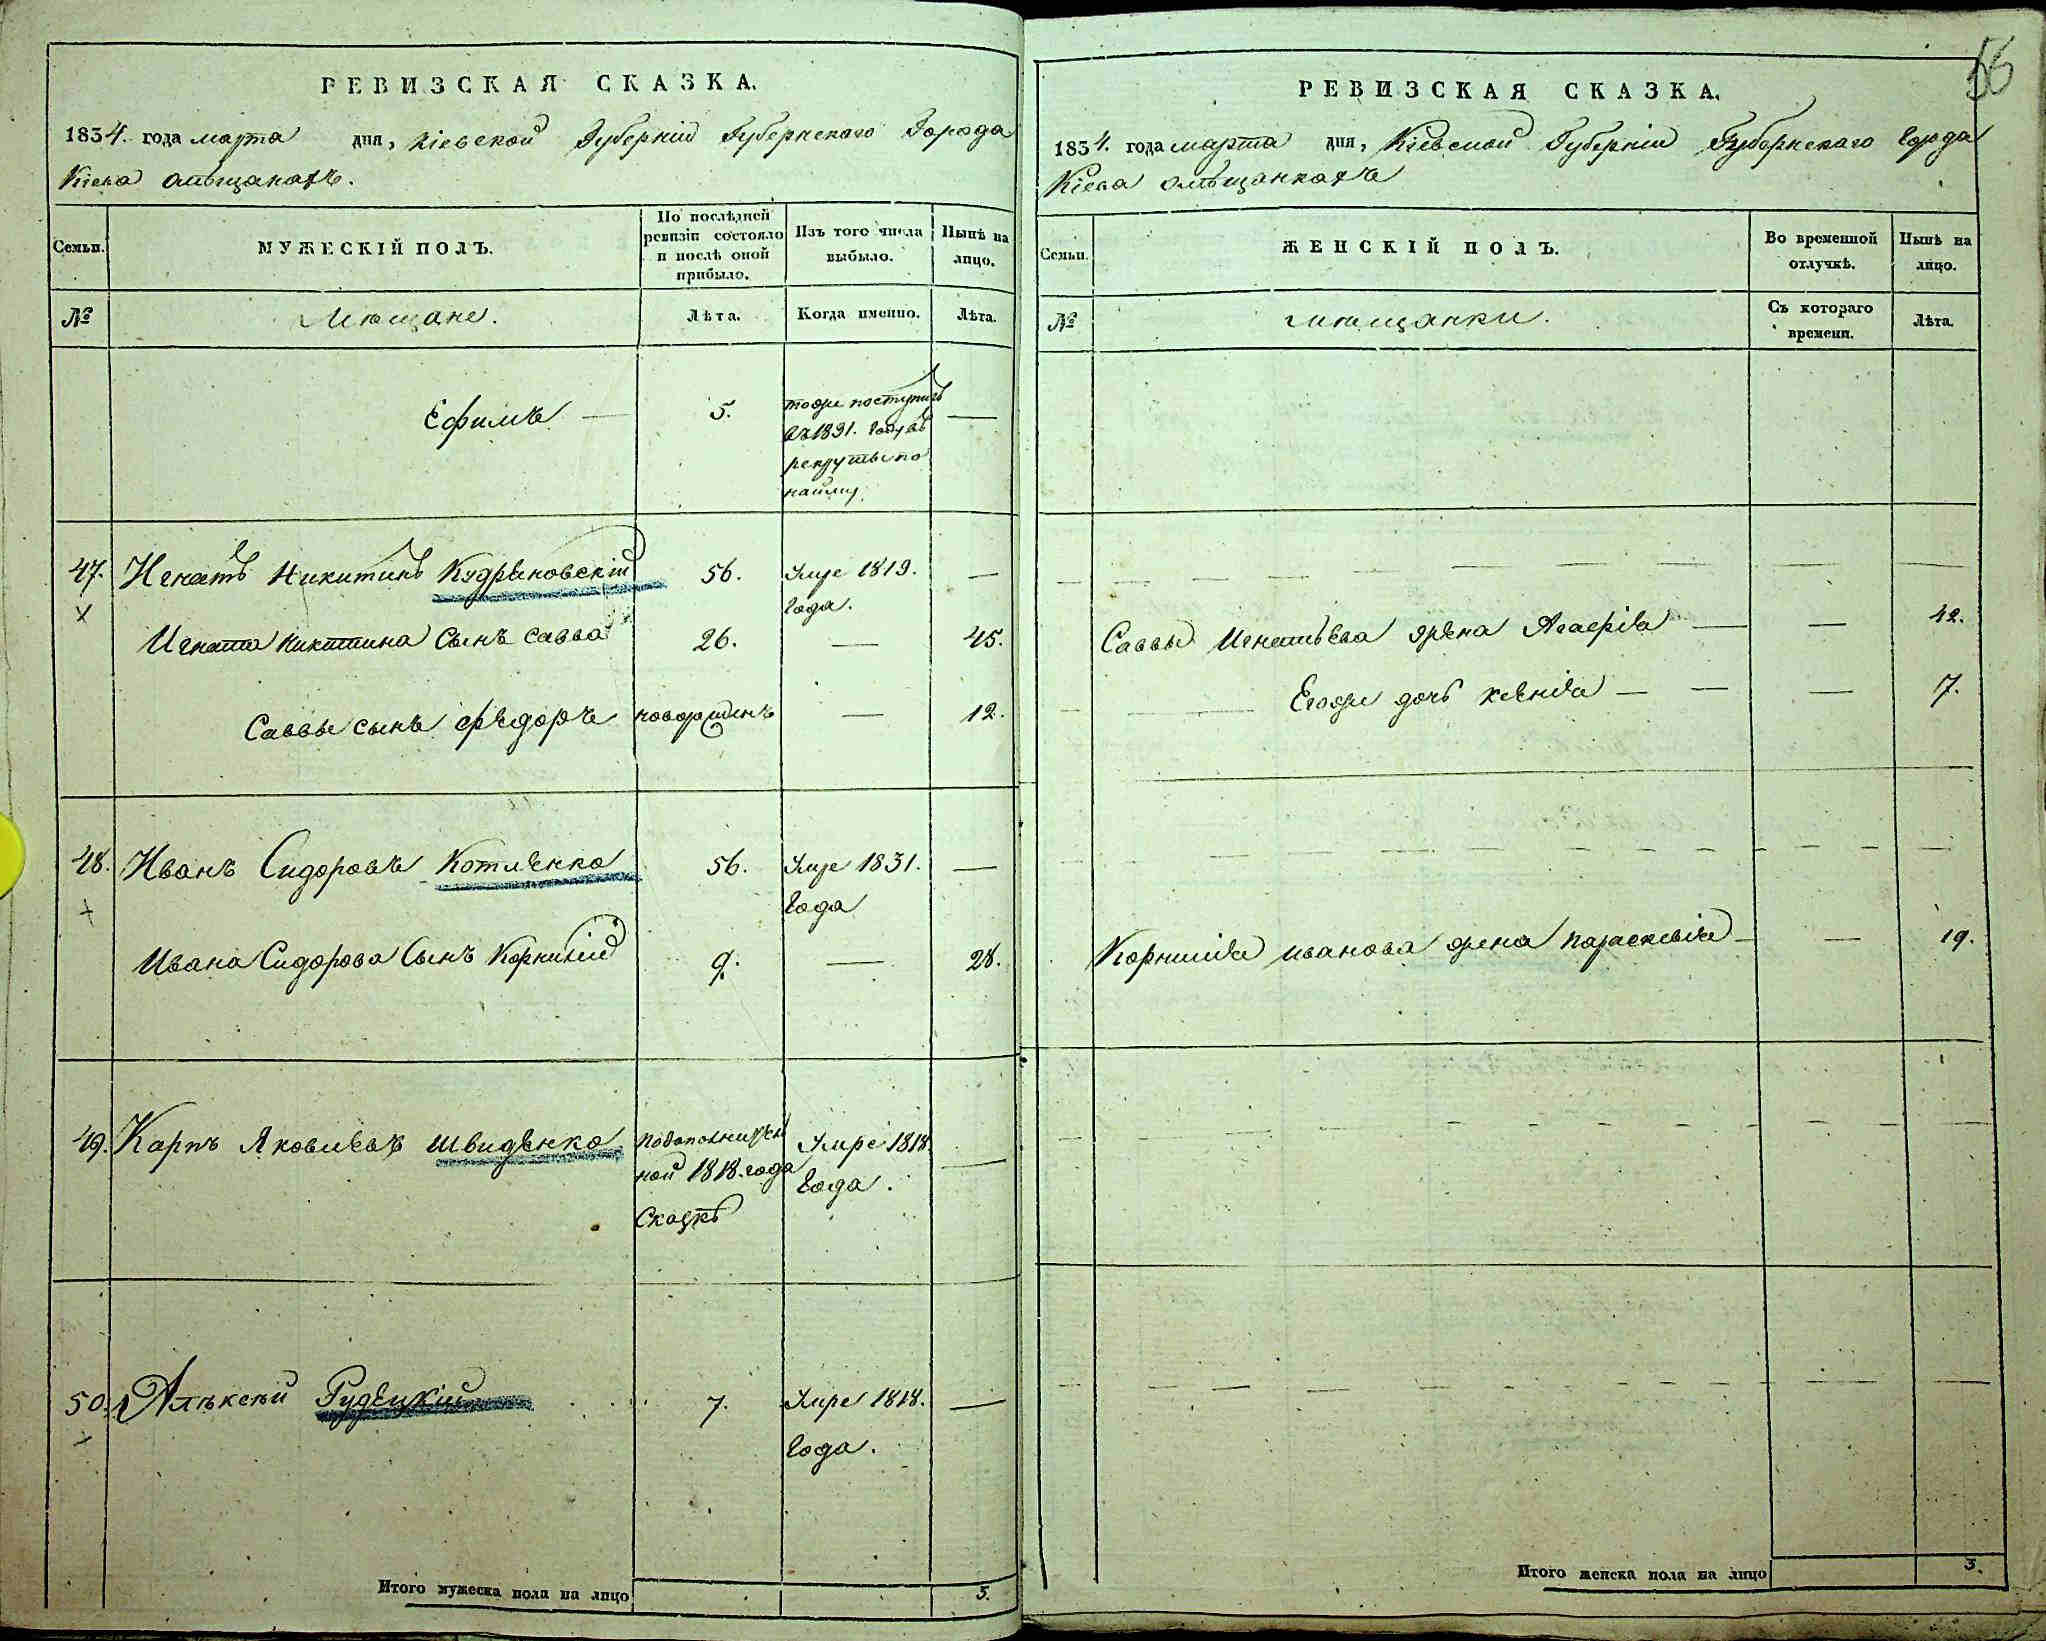 56
РЕВИЗСКАЯ СКАЗКА.
1834. года марта дня, Кіевской Губерніи Губернскаго Города
Кіева омѣщанахъ.
Семьи.
МУЖЕСКІЙ ПОЛЪ.
По послѣдней
ревизіи состояло
и послѣ оной
прибыло.
Изъ того числа
выбыло.
Нынѣ на
лицо.
№
Мѣщане.
Лѣта.
Когда именно.
Лѣта.
Ефимъ — 5. тоже поступилъ —
въ 1831. году въ
рекруты по
найму
47. Игнатъ Никитинъ Кудрѣновскій 56. Умре 1819. —
года.
Игната Никитина Сынъ Савва 26. — 45.
Саввы сынъ Ѳедоръ новорожденъ — 12.
48. Иванъ Сидоровъ Котленко 56. Умре 1831. —
года
Ивана Сидорова Сынъ Корнилій 9. — 28.
49. Карпъ Яковлевъ Швиденко подополнитель Умре 1818. —
ной 1818. года года.
Сказкѣ
50. Алѣксѣй Рудецкій 7. Умре 1818. —
года.
Итого мужеска пола на лицо 3.
РЕВИЗСКАЯ СКАЗКА.
1834. года марта дня, Кіевской Губерніи Губернскаго города
Кіева омѣщанкахъ
Семьи.
ЖЕНСКІЙ ПОЛЪ.
Во временной
отлучкѣ.
Нынѣ на
лицо.
№
мѣщанки.
Съ котораго
времени.
Лѣта.
Саввы Игнатьева жена Агаѳія — — 42.
Егоже дочь Ксенія — — — 7.
Корнилія Иванова жена Параскевія — — 19.
Итого женска пола на лицо 3.